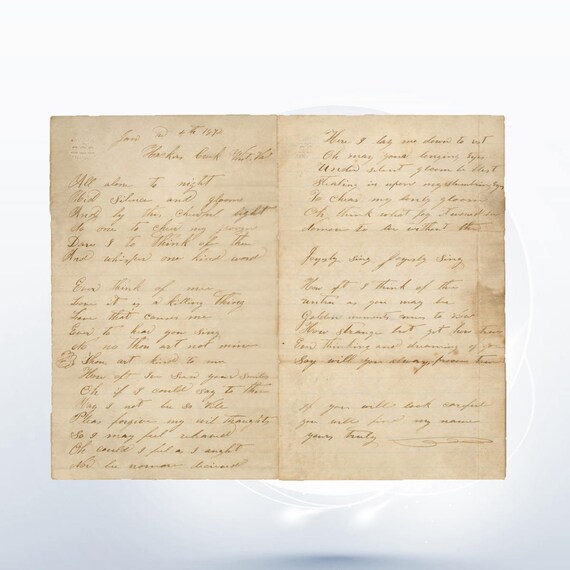 Jan 4th 1872
Hackers Creek West. Va
All alone to night
Mid Silence and gloome
And by this cheerful light
is one to chear my
Dare I to think of thee
And whisper one kind word
Ever think of me
Love it is a killing thing
Love that causes me
Ever to hear you sing
As so thou art not mine
Thou art kind to me
How oft Ive seen your smiles
Oh if I could say to thee
May I not be so vile
Pleas forgive my evil thoughts
So I may feel relieved
Oh could I feel as I aught
Nor be nomore deceived
How I lay me down to rest
Oh may your longing eyes
Under silent gloom be blest
Stealing in upon my slumbering eyes
To chear my lonly gloom
Oh, think what joy I would
to be without thee
Joyfuly sing Joyfuly sing
How oft I think of thee
as you may be
Golden moments
How strange but yet how true
Ever thinking and dreaming of you
Say will you always prove true
if you will look careful
you will find my name
yours truly